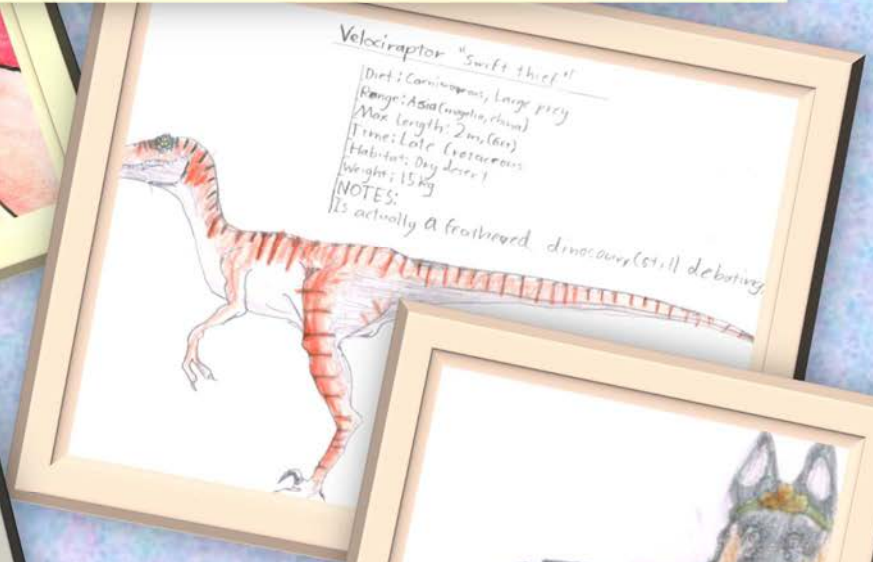 Velociraptor "Swift thief"
Diet: Carnivorous, Large prey
Range: Asia(mogolia, china)
Max Length: 2m,(6ft)
Time: Late Cretaceous
Habitat: Dry desert
Weight: 15kg
NOTES:
Is actually a feathered dinosaur(still debating)